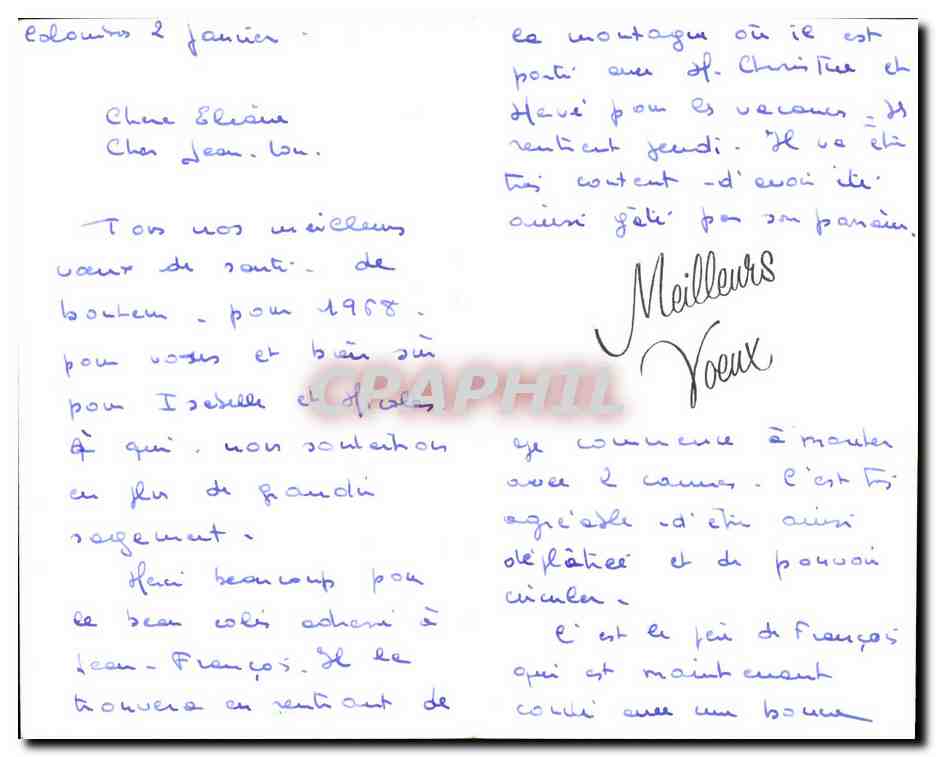 Colomiers 2 janvier.
Chère Eliane
Cher Jean-Lou.
Tous nos meilleurs
vœux de santé - de
bonheur - pour 1968 -
pour vous et bien sûr
pour Isabelle et Nicolas
à qui nous souhaitons
en plus de grandir
sagement.
Merci beaucoup pour
le beau colis adressé à
Jean-François. Il le
trouvera en rentrant de
la montagne où il est
parti avec M. Christine et
Hervé pour les vacances. Ils
rentrent jeudi. Il va être
très content d'avoir été
ainsi gâté par son parrain.
Meilleurs
Voeux
Je commence à marcher
avec 2 cannes. C'est très
agréable d'être ainsi
déplâtrée et de pouvoir
circuler.
C'est le père de François
qui est maintenant
couché avec une bonne
CPAPHIL